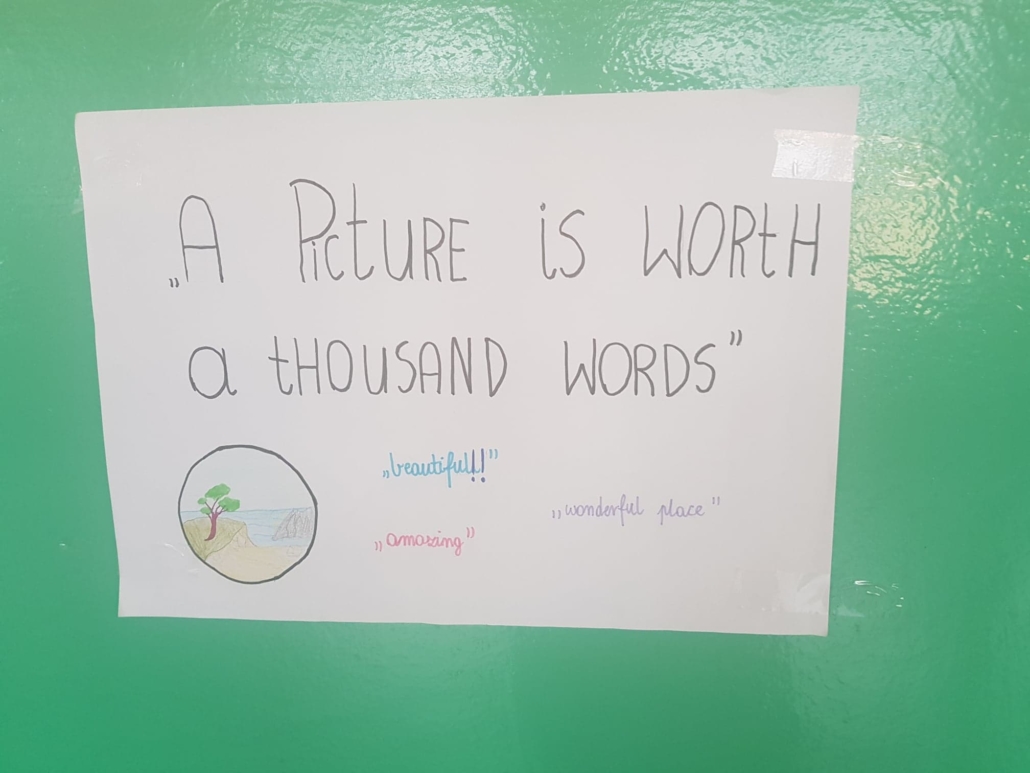 „A PictURE is WORtH
a tHOUSAND WORDS”
„beautiful!!”
„wonderful place”
„amazing”